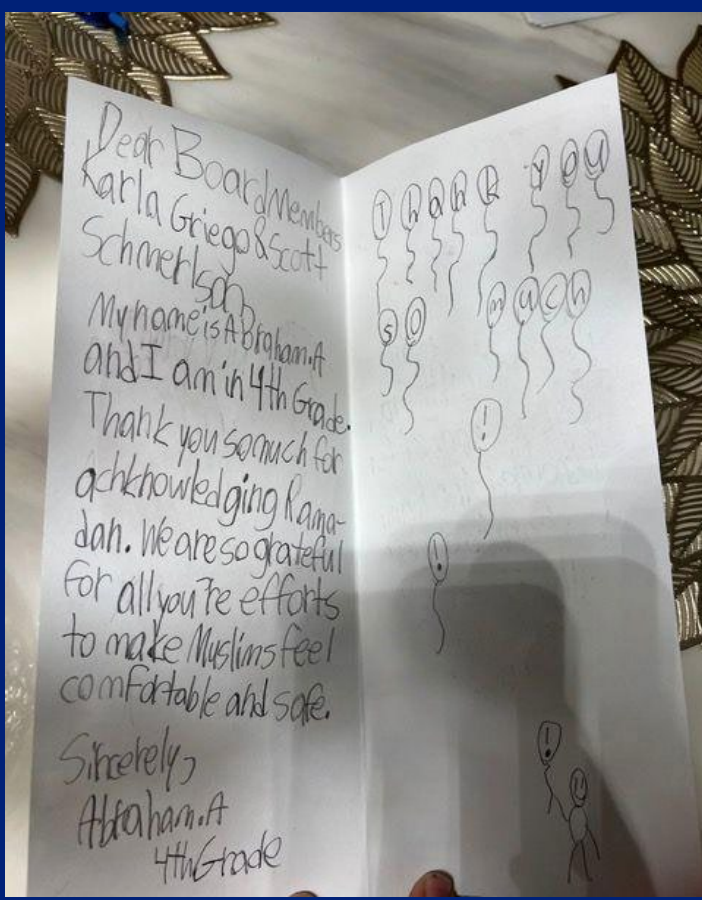 Dear BoardMembers
Karla Griego & Scott
Schmerlson
My name is Abraham.A
and I am in 4th Grade.
Thank you so much for
achknowledging Rama-
dan. We are so grateful
for all you're efforts
to make Muslims feel
comfortable and safe.
Sincerely,
Abraham.A
4th Grade
Thank you
so much
!
!
!